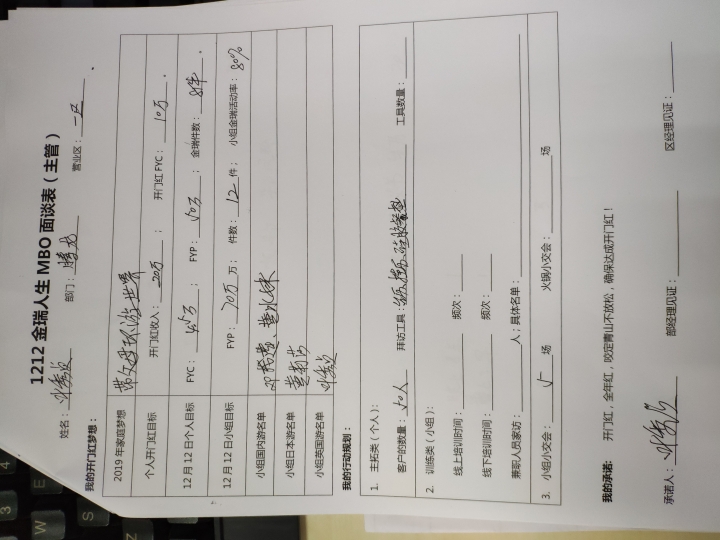 1212 金瑞人生 MBO 面谈表（主管）
姓名： 部门：腾龙 营业区：一区
我的开门红梦想：
2019 年家庭梦想 带父母环游世界
个人开门红目标 开门红收入：20万； 开门红 FYC：10万.
12 月 12 日个人目标 FYC：4.5万； FYP：50万； 金瑞件数：8件.
12 月 12 日小组目标 FYP：70万 万； 件数：12 件； 小组金瑞活动率：80%
小组国内游名单
小组日本游名单
小组英国游名单
我的行动规划：
1. 主拓类（个人）：
客户的数量：50人 拜访工具： 工具数量：
2. 训练类（小组）：
线上培训时间： 频次：
线下培训时间： 频次：
兼职人员家访： 人；具体名单：
3. 小组小交会：5 场 火锅小交会： 场
我的承诺： 开门红，全年红，咬定青山不放松，确保达成开门红！
承诺人： 部经理见证： 区经理见证：
3 4
W E
S